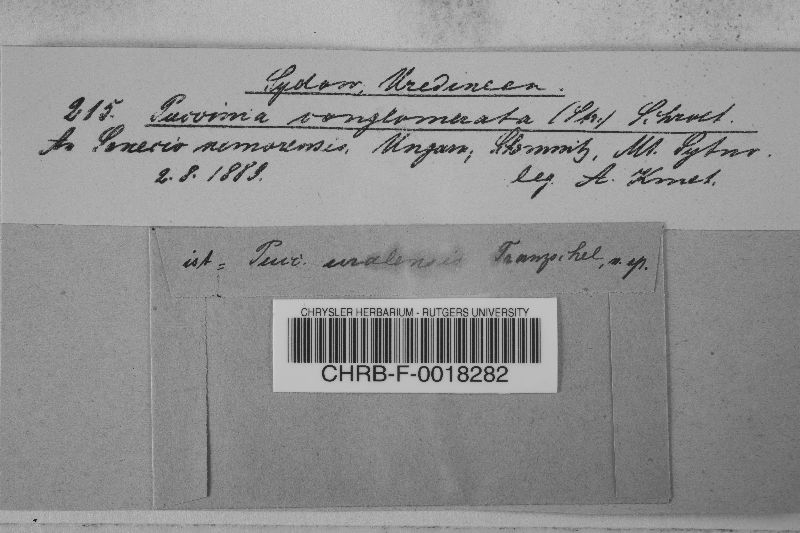 Sydow, Uredineen.
215. Puccinia conglomerata (Str.) Schroet.
An Senecio nemorensis. Ungarn; Mt. Sytno.
2.8.1889. leg. A. Kmet.
ist = Pucc. uralensis Tranzschel, n. sp.
CHRYSLER HERBARIUM - RUTGERS UNIVERSITY
CHRB-F-0018282